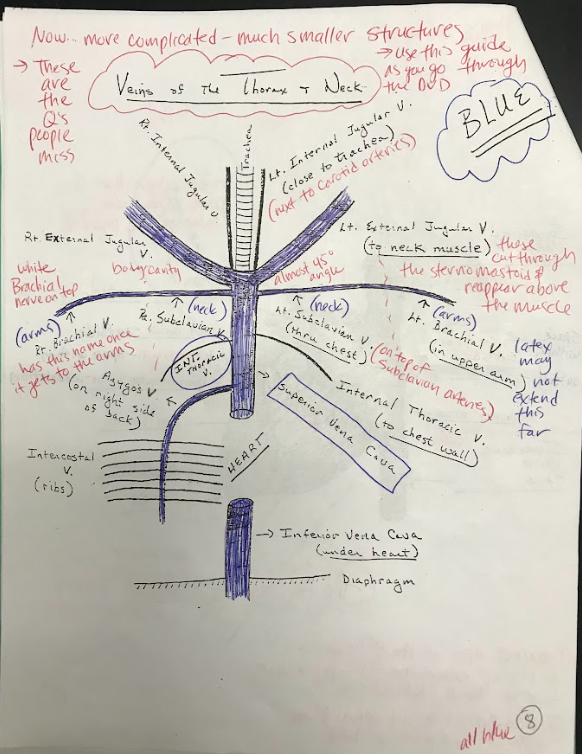 Now... more complicated - much smaller structures
→ These
are
the
Q's
people
miss
→ use this guide
as you go through
the DVD
Veins of The Thorax & Neck
BLUE
Rt. Internal Jugular V.
Trachea
Lt. Internal Jugular V.
(close to trachea)
(next to carotid arteries)
Rt. External Jugular
V.
Lt. External Jugular V.
(to neck muscle)
these
cut through
the sternomastoid &
reappear above
the muscle
white
Brachial
nerve on top
body cavity
almost 45°
angle
(arms)
(neck)
(neck)
(arms)
Rt. Brachial V.
has this name once
it gets to the arms
Rt. Subclavian V.
Lt. Subclavian V.
(thru chest)
(on top of
Subclavian arteries)
Lt. Brachial V.
(in upper arm)
latex
may
not
extend
this
far
INT.
THORACIC
V.
Azygos V
(on right side
of back)
Internal Thoracic V.
(to chest wall)
Superior Vena Cava
Intercostal
V.
(ribs)
HEART
→ Inferior Vena Cava
(under heart)
Diaphragm
all blue
8